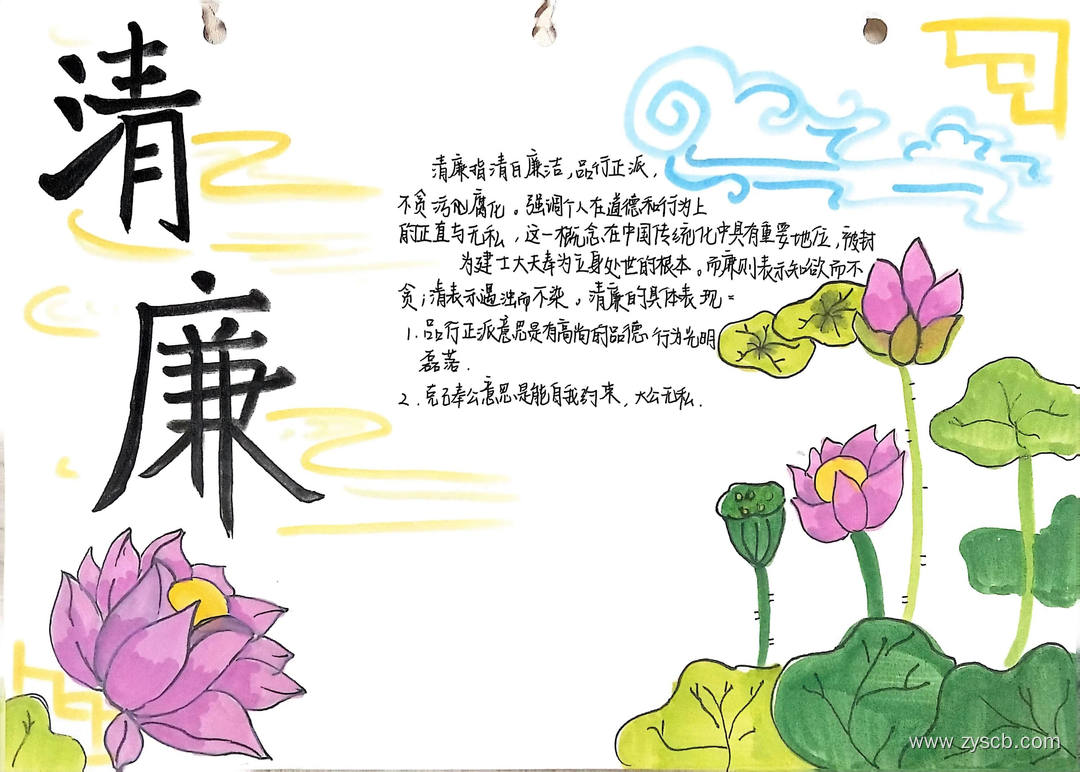 清
廉
清廉指清白廉洁,品行正派,
不贪污化腐化。强调个人在道德和行为上
的正直与无私,这一概念在中国传统化中具有重要地位,被封
为建士大夫奉为立身处世的根本。而廉则表示知欲而不
贪;清表示遇浊而不染。清廉的具体表现:
1.品行正派意思是有高尚的品德 行为光明
磊落.
2.克己奉公意思是能自我约束,大公无私.
www.zyscb.com